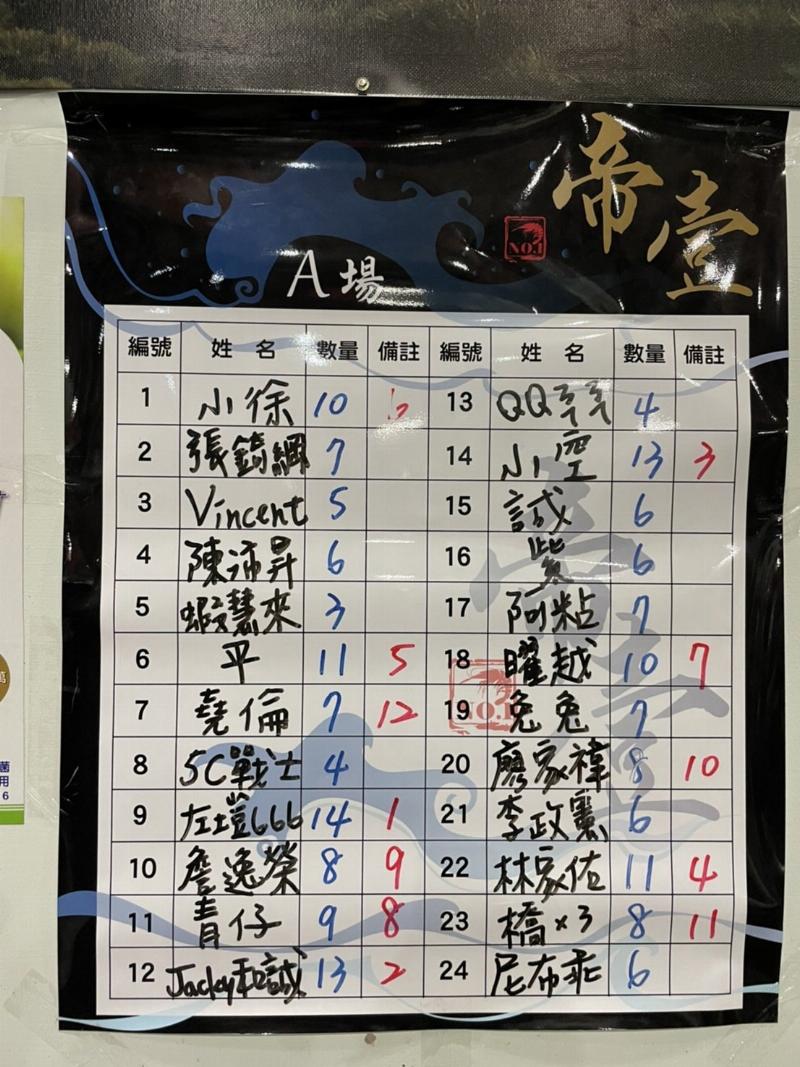 帝壹
NO.1
A場
編號 姓名 數量 備註 編號 姓名 數量 備註
1 小徐 10 13 QQ孓孓 4
2 張錡綱 7 14 小空 13 3
3 Vincent 5 15 誠 6
4 陳沛昇 6 16 紫 6
5 蝦慧來 3 17 阿粘 7
6 平 11 5 18 曜越 10 7
7 堯倫 7 12 19 兔兔 7
8 5C戰士 4 20 廖家禕 8 10
9 左塏666 14 1 21 李政熏 6
10 詹逸榮 8 9 22 林家佑 11 4
11 青仔 9 8 23 橋×3 8 11
12 Jacky和誠 13 2 24 尼布乖 6